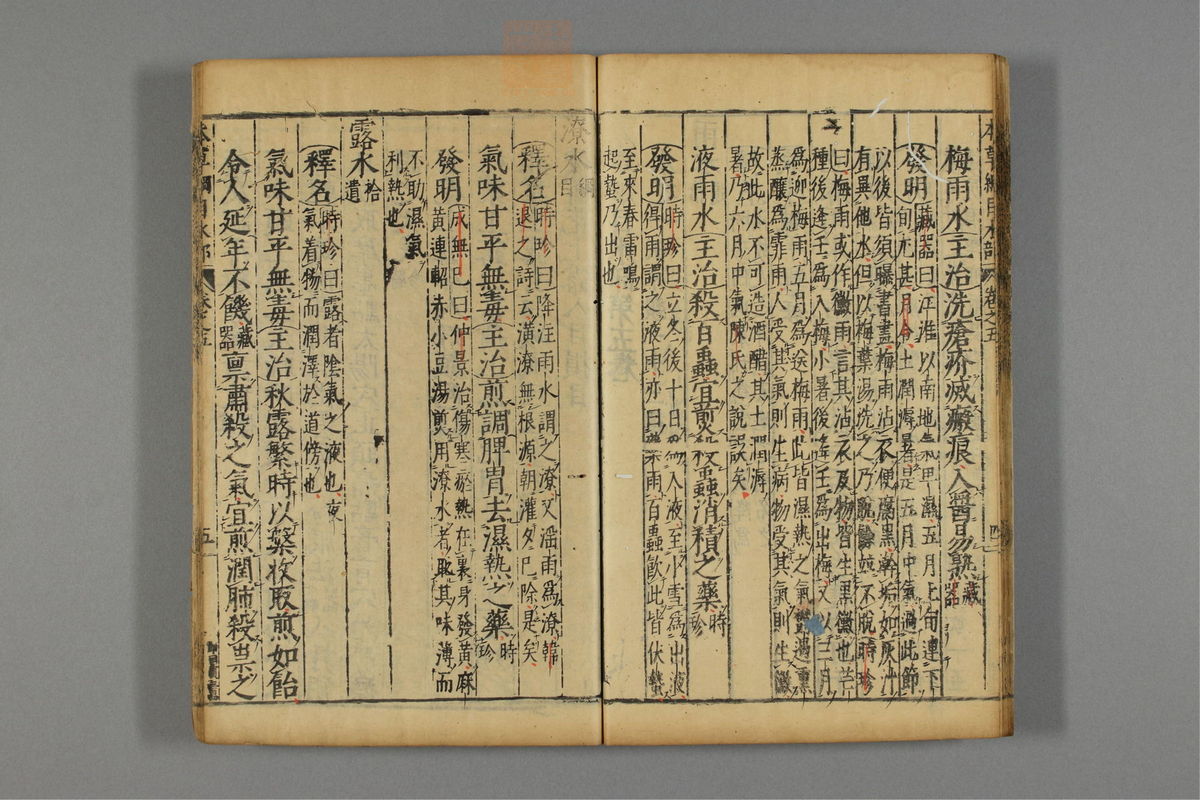 本草綱目水部 卷之五 四
梅雨水主治洗瘡疥滅瘢痕入醬易熟藏器
發明藏器曰江淮以南地氣卑濕五月上旬連下
旬尤甚月令土潤溽暑是五月中氣過此節
以後皆須曝書畫梅雨沾衣便腐黑澣垢如灰汁
有異他水但以梅葉湯洗之乃脫餘並不脫時珍
曰梅雨或作黴雨言其沾衣及物皆生黑黴也芒
種後逢壬爲入梅小暑後逢壬爲出梅又以三月
爲迎梅雨五月爲送梅雨此皆濕熱之氣鬱遏熏
蒸釀爲霏雨人受其氣則生病物受其氣則生黴
故此水不可造酒醋其土潤溽
暑乃六月中氣陳氏之說誤矣
液雨水主治殺百蟲宜煎殺蟲消積之藥時珍
發明時珍曰立冬後十日爲入液至小雪爲出液
得雨謂之液雨亦曰藥雨百蟲飲此皆伏蟄
至來春雷鳴
起蟄乃出也
潦水綱目
釋名時珍曰降注雨水謂之潦又滛雨爲潦韓
退之詩云潢潦無根源朝灌夕已除是矣
氣味甘平無毒主治煎調脾胃去濕熱之藥時珍
發明成無已曰仲景治傷寒瘀熱在裏身發黃麻
黃連軺赤小豆湯煎用潦水者取其味薄而
不助濕氣
利熱也
露水拾遺
釋名時珍曰露者陰氣之液也夜
氣着物而潤澤於道傍也
氣味甘平無毒主治秋露繁時以槃收取煎如飴
令人延年不饑藏器稟肅殺之氣宜煎潤肺殺祟之
本草綱目水部 卷之五 五